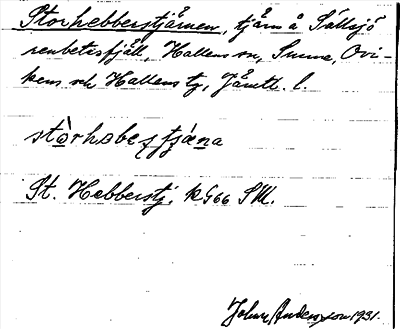 Storhebberstjärnen, tjärn å Sällsjö
renbetesfjäll, Hallens sn, Sunne, Ovi-
kens och Hallens tg, Jämtl. l.
stòrhəbeʂtjæna
St. Hebberstj. k G66 SV.
Johnny Andersson 1931.